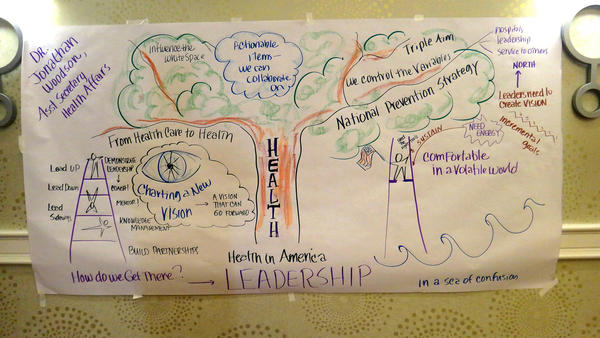 DR.
Jonathan
Woodson,
Asst Secretary
Health Affairs
Influence the
White Space
Actionable
items -
we can
collaborate
on
Triple Aim
we control the Variables
National Prevention Strategy
hospital
leadership
service to others
NORTH
Leaders need to
Create VISION
Incremental
goals
NEED
ENERGY
SUSTAIN
From Health Care to Health
Lead UP
Lead Down
Lead
Sideways
DEMONSTRATE
LEADERSHIP
COACH!
MENTOR!
KNOWLEDGE
MANAGEMENT
BUILD PARTNERSHIPS
Charting a New
Vision
A VISION
THAT CAN
GO FORWARD
HEALTH
Comfortable
in a Volatile World
Health in America
How do we Get There?
LEADERSHIP
in a sea of confusion